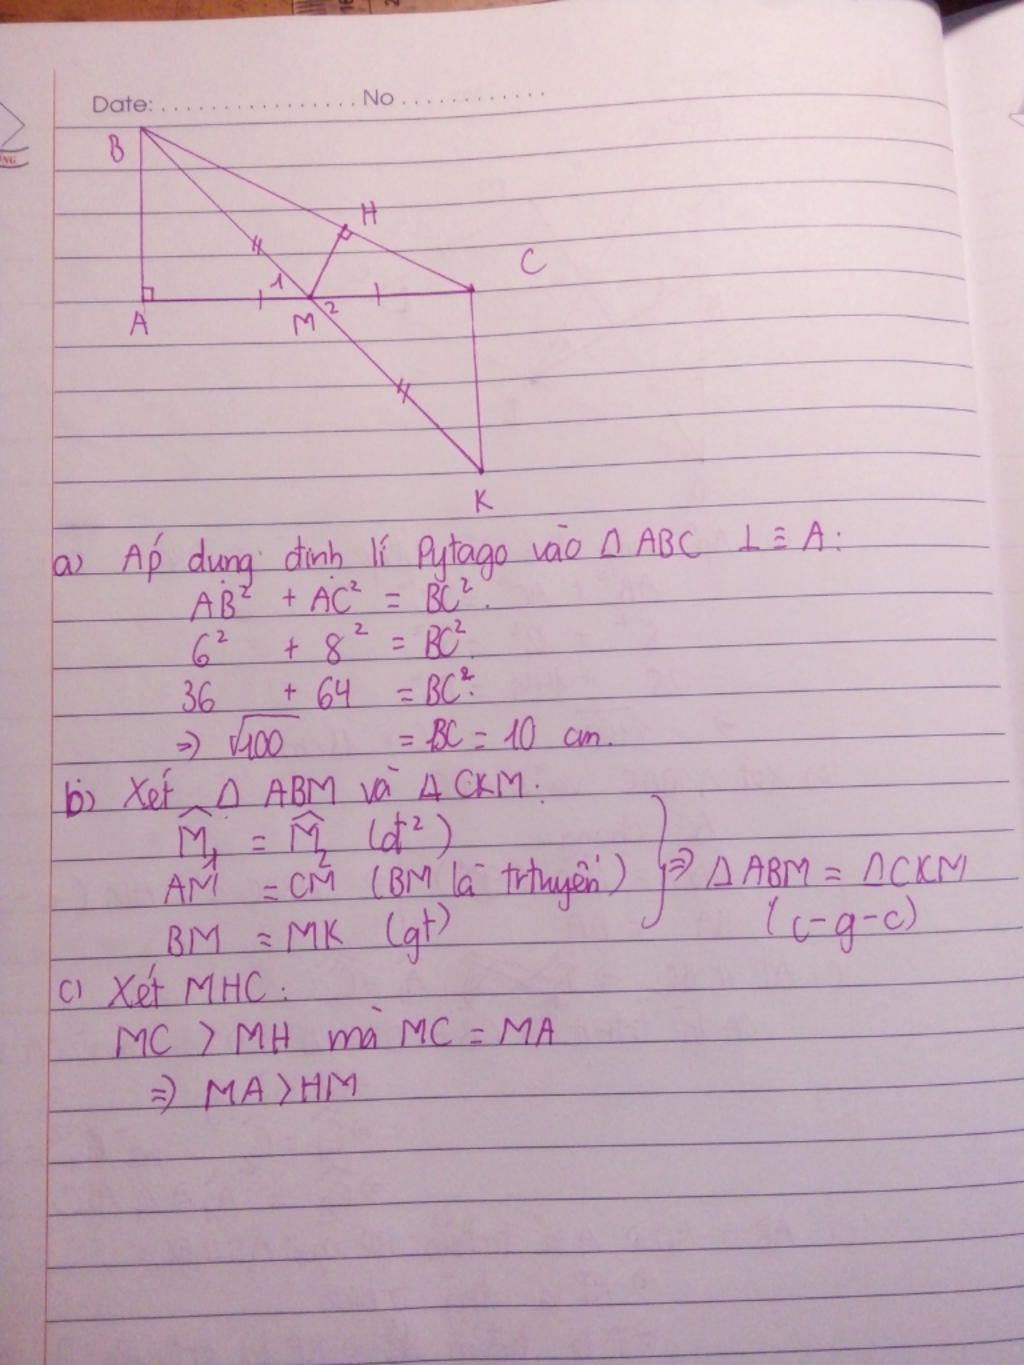 Date: ................ No ............
B
H
C
1
A
M
2
K
a) Áp dụng định lí Pytago vào Δ ABC ⊥ ≡ A:
AB² + AC² = BC².
6² + 8² = BC².
36 + 64 = BC².
=> √100 = BC = 10 cm.
b) Xét Δ ABM và Δ CKM:
M̂₁ = M̂₂ (đ²)
AM = CM (BM là trtuyến)
BM = MK (gt)
} => Δ ABM = Δ CKM
(c-g-c)
c) Xét MHC:
MC > MH mà MC = MA
=> MA > HM